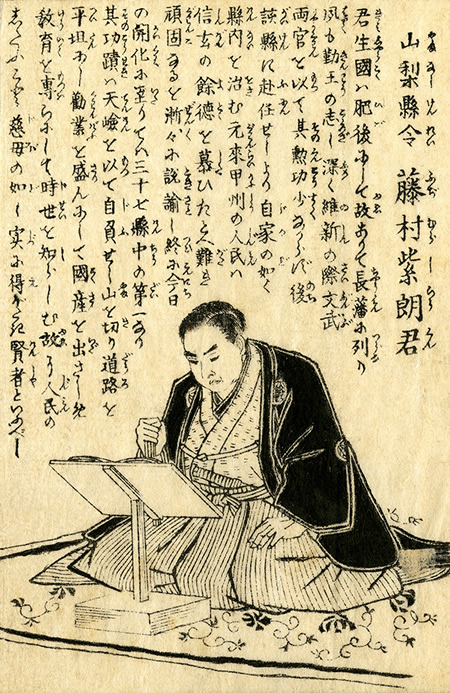 山梨縣令 藤村紫朗君
君生國ハ肥後にして故ありて長藩に列り
夙も勤王の志し深く維新の際文武
両官を以て其勲功少なからず後
該縣に赴任せしより自家の如く
縣内を治む元來甲州の人民ハ
信玄の餘徳を慕ひたとへ難き
頑固なるを漸々に説諭し終に今日
の開化に至りてハ三十七縣中の第一なり
其功蹟ハ天嶮を以て自負せし山を切り道路を
平坦にし勧業を盛んにして國産を出さしめ
教育を専らにして時世を知らしむ故に人民の
したふこと慈母の如し実に得がたき賢者といふべし